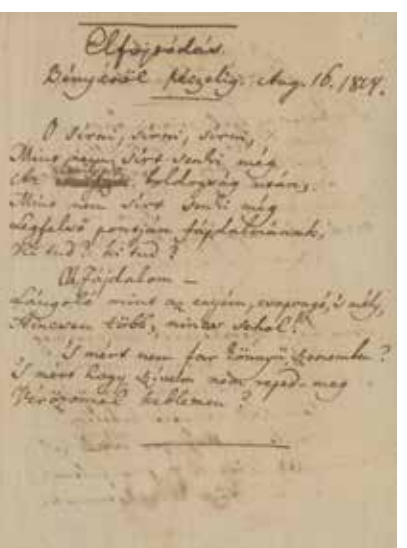 Elfojtódás.
Aug. 16.
O sírni, sírni, sírni,
Mint nem sírt senki még
Az boldogság után;
Mint nem sírt senki még
Legfelső pontján fájdalmának,
Ki tud? ki tud?
Ah fájdalom –
Lángoló mint az enyém, csapongó, 's mély,
Nincsen több, nincsen sehol!
'S mért nem forr könnyü szememben?
'S mért hogy szívem nem reped meg
Vérözönnel keblemen?